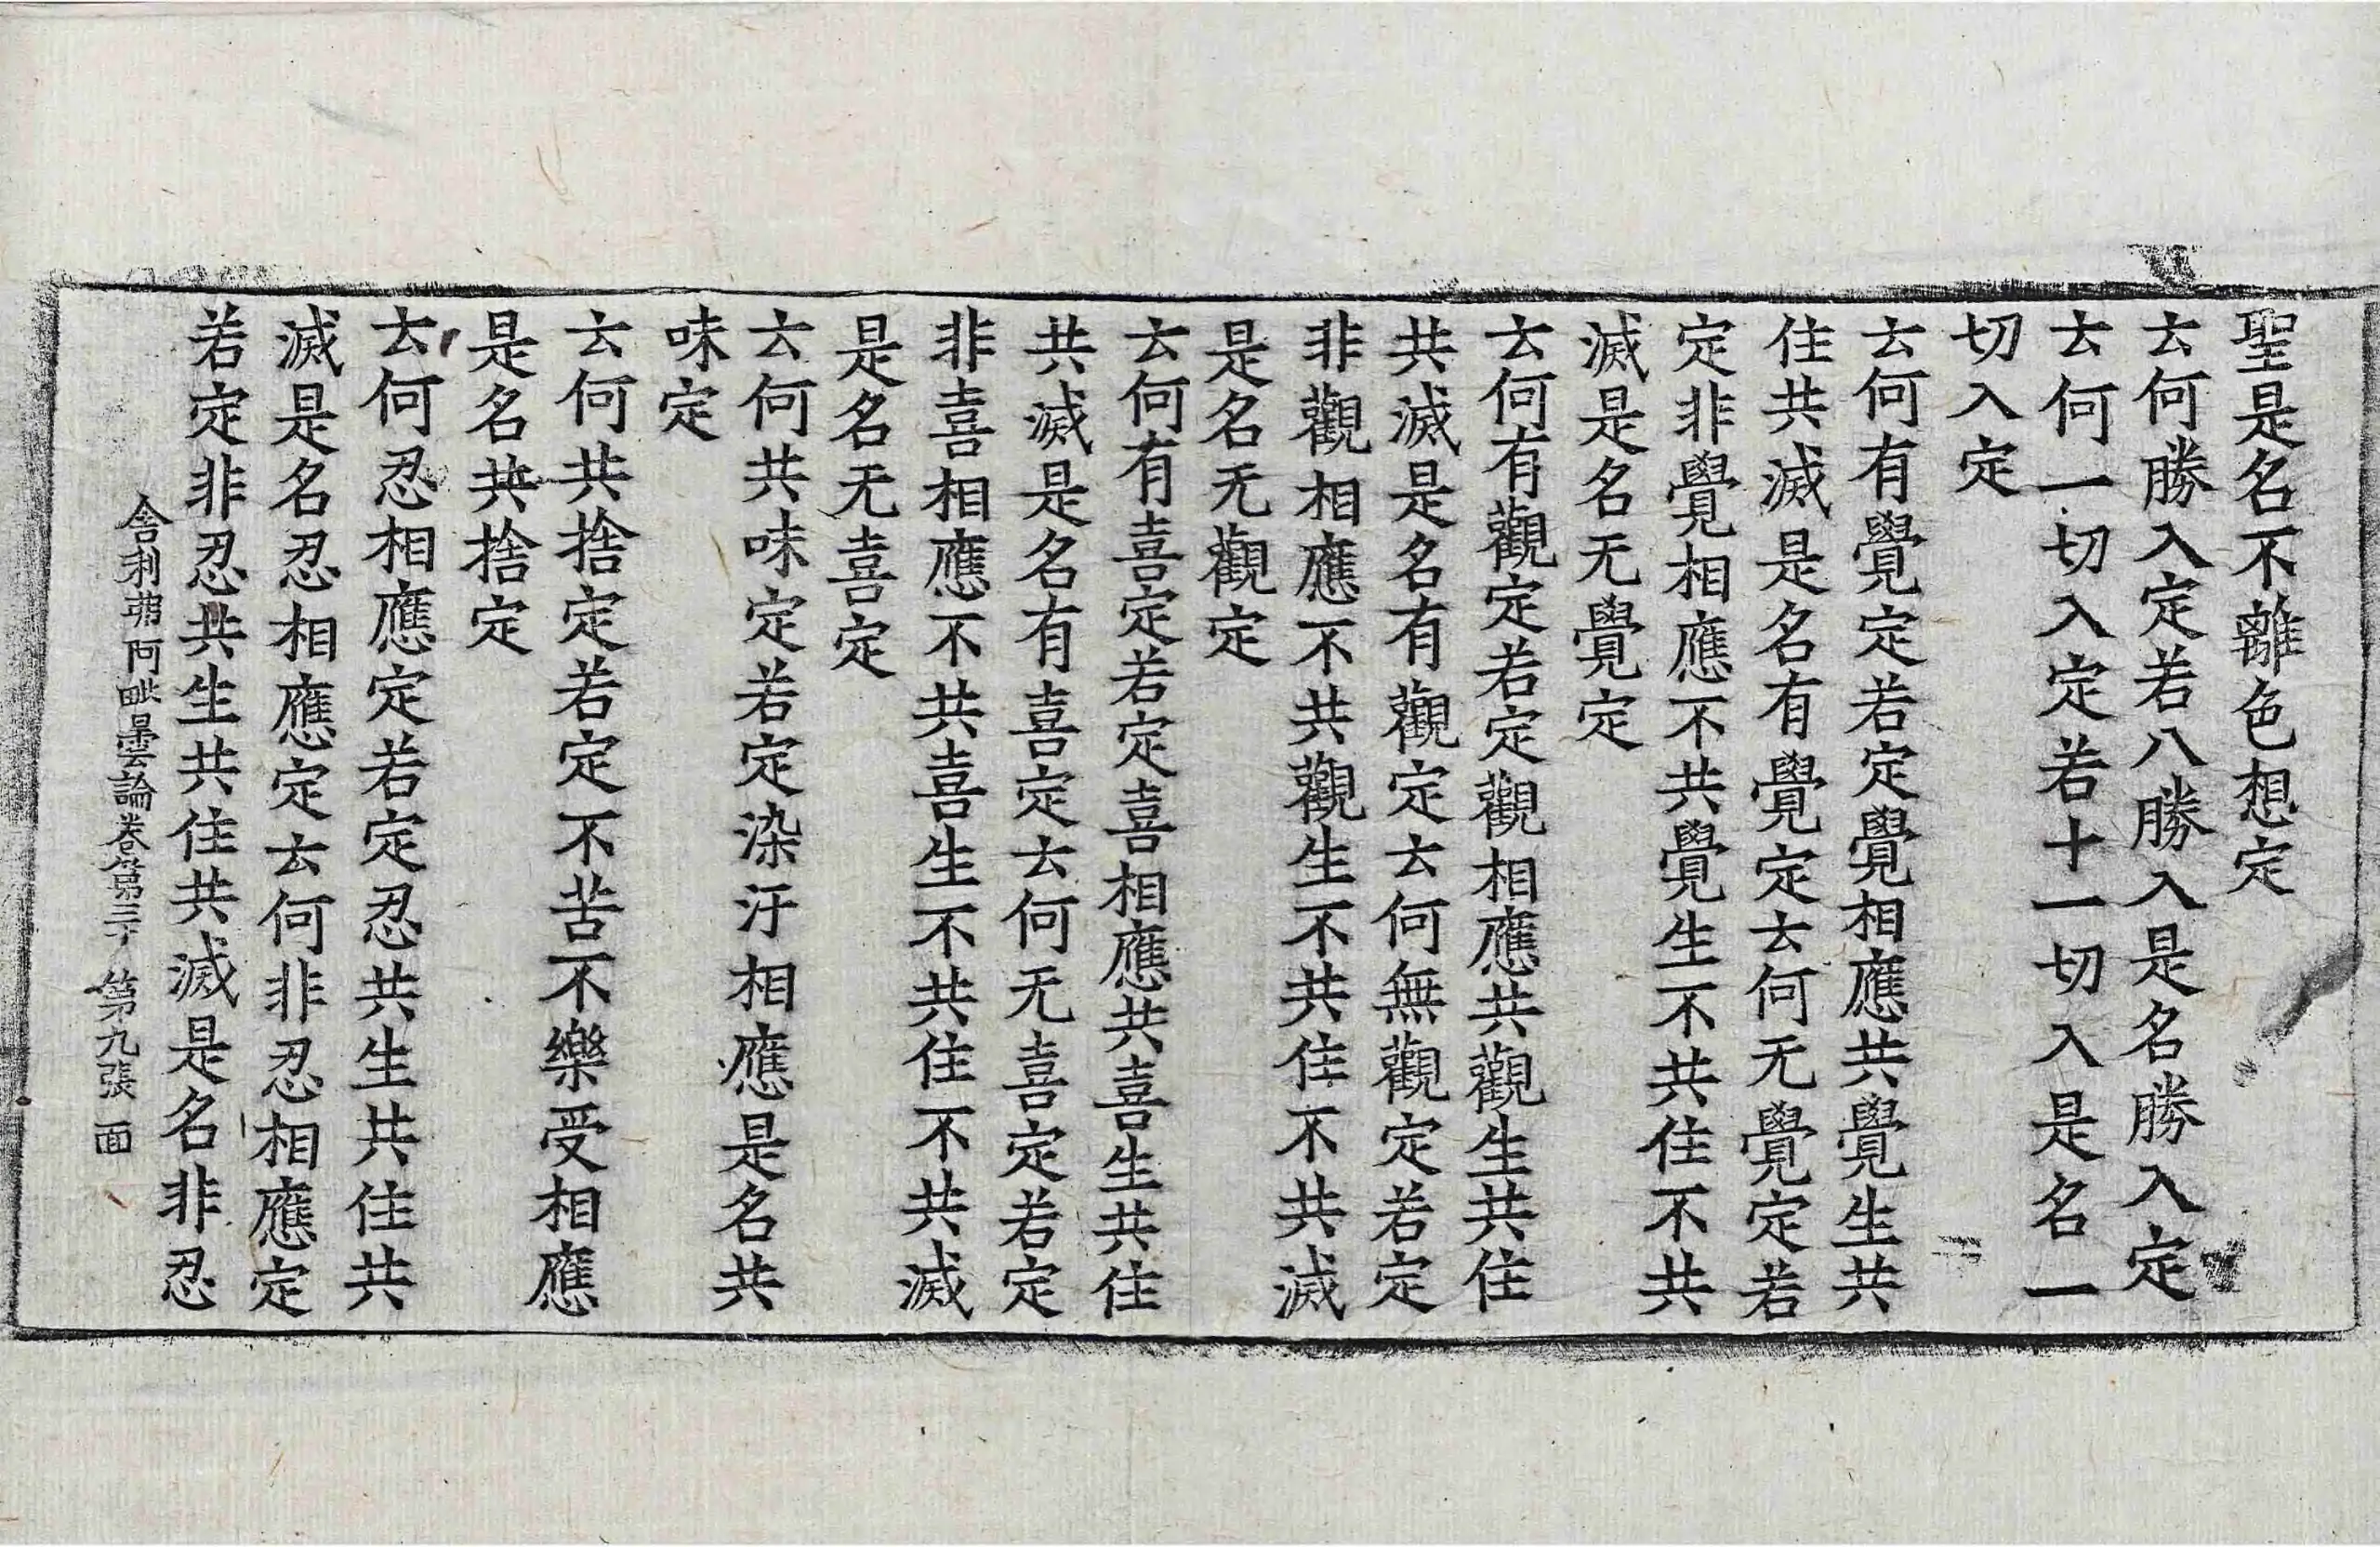 聖是名不離色想定
云何勝入定若八勝入是名勝入定
云何一切入定若十一切入是名一
切入定
云何有覺定若定覺相應共覺生共
住共滅是名有覺定云何无覺定若
定非覺相應不共覺生不共住不共
滅是名无覺定
云何有觀定若定觀相應共觀生共住
共滅是名有觀定云何無觀定若定
非觀相應不共觀生不共住不共滅
是名无觀定
云何有喜定若定喜相應共喜生共住
共滅是名有喜定云何无喜定若定
非喜相應不共喜生不共住不共滅
是名无喜定
云何共味定若定染汙相應是名共
味定
云何共捨定若定不苦不樂受相應
是名共捨定
云何忍相應定若定忍共生共住共
滅是名忍相應定云何非忍相應定
若定非忍共生共住共滅是名非忍
舍利弗阿毗曇論卷第三十 第九張 面